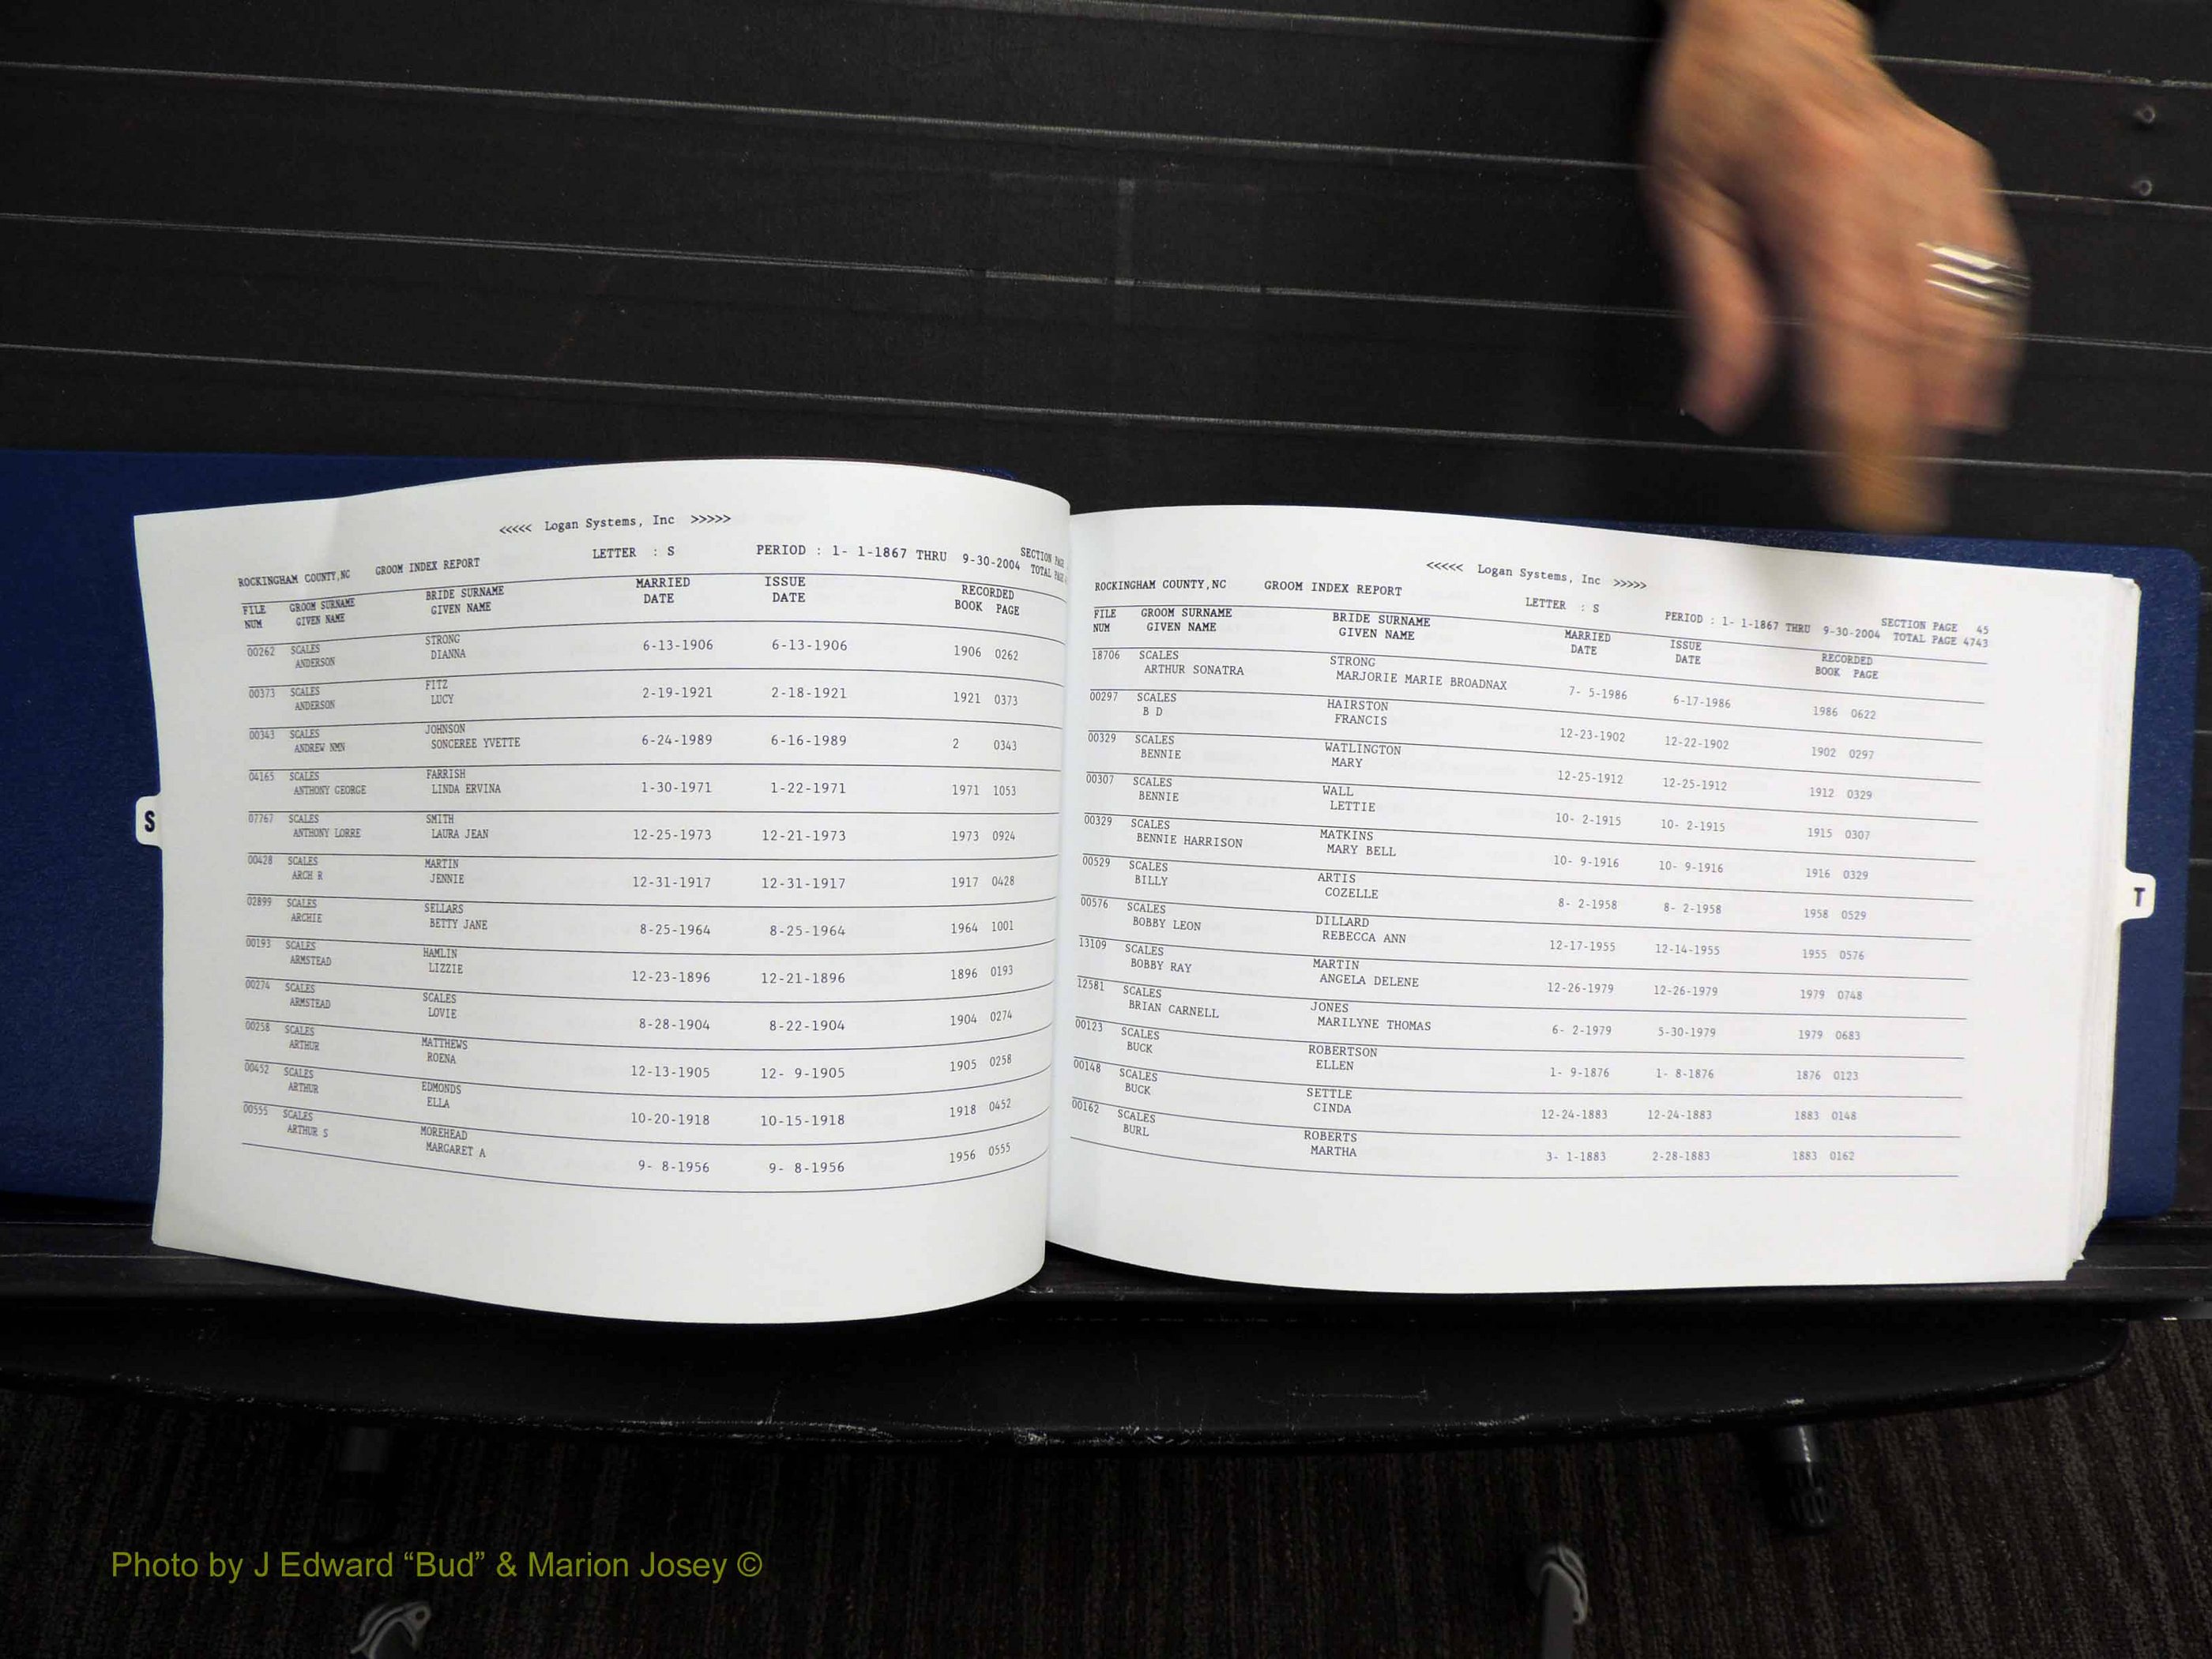 <<<<< Logan Systems, Inc >>>>>
ROCKINGHAM COUNTY,NC GROOM INDEX REPORT LETTER : S PERIOD : 1- 1-1867 THRU 9-30-2004 SECTION
TOTAL
FILE GROOM SURNAME BRIDE SURNAME MARRIED ISSUE RECORDED
NUM GIVEN NAME GIVEN NAME DATE DATE BOOK PAGE
00262 SCALES STRONG 6-13-1906 6-13-1906 1906 0262
ANDERSON DIANNA
00373 SCALES FITZ 2-19-1921 2-18-1921 1921 0373
ANDERSON LUCY
00343 SCALES JOHNSON 6-24-1989 6-16-1989 2 0343
ANDREW NMN SONCEREE YVETTE
04165 SCALES FARRISH 1-30-1971 1-22-1971 1971 1053
ANTHONY GEORGE LINDA ERVINA
07767 SCALES SMITH 12-25-1973 12-21-1973 1973 0924
ANTHONY LORRE LAURA JEAN
00428 SCALES MARTIN 12-31-1917 12-31-1917 1917 0428
ARCH R JENNIE
02899 SCALES SELLARS 8-25-1964 8-25-1964 1964 1001
ARCHIE BETTY JANE
00193 SCALES HAMLIN 12-23-1896 12-21-1896 1896 0193
ARMSTEAD LIZZIE
00274 SCALES SCALES 8-28-1904 8-22-1904 1904 0274
ARMSTEAD LOVIE
00258 SCALES MATTHEWS 12-13-1905 12- 9-1905 1905 0258
ARTHUR ROENA
00452 SCALES EDMONDS 10-20-1918 10-15-1918 1918 0452
ARTHUR ELLA
00555 SCALES MOREHEAD 9- 8-1956 9- 8-1956 1956 0555
ARTHUR S MARGARET A
S
<<<<< Logan Systems, Inc >>>>>
ROCKINGHAM COUNTY,NC GROOM INDEX REPORT LETTER : S PERIOD : 1- 1-1867 THRU 9-30-2004 SECTION PAGE 45
TOTAL PAGE 4743
FILE GROOM SURNAME BRIDE SURNAME MARRIED ISSUE RECORDED
NUM GIVEN NAME GIVEN NAME DATE DATE BOOK PAGE
18706 SCALES STRONG 7- 5-1986 6-17-1986 1986 0622
ARTHUR SONATRA MARJORIE MARIE BROADNAX
00297 SCALES HAIRSTON 12-23-1902 12-22-1902 1902 0297
B D FRANCIS
00329 SCALES WATLINGTON 12-25-1912 12-25-1912 1912 0329
BENNIE MARY
00307 SCALES WALL 10- 2-1915 10- 2-1915 1915 0307
BENNIE LETTIE
00329 SCALES MATKINS 10- 9-1916 10- 9-1916 1916 0329
BENNIE HARRISON MARY BELL
00529 SCALES ARTIS 8- 2-1958 8- 2-1958 1958 0529
BILLY COZELLE
00576 SCALES DILLARD 12-17-1955 12-14-1955 1955 0576
BOBBY LEON REBECCA ANN
13109 SCALES MARTIN 12-26-1979 12-26-1979 1979 0748
BOBBY RAY ANGELA DELENE
12581 SCALES JONES 6- 2-1979 5-30-1979 1979 0683
BRIAN CARNELL MARILYNE THOMAS
00123 SCALES ROBERTSON 1- 9-1876 1- 8-1876 1876 0123
BUCK ELLEN
00148 SCALES SETTLE 12-24-1883 12-24-1883 1883 0148
BUCK CINDA
00162 SCALES ROBERTS 3- 1-1883 2-28-1883 1883 0162
BURL MARTHA
T
Photo by J Edward “Bud” & Marion Josey ©